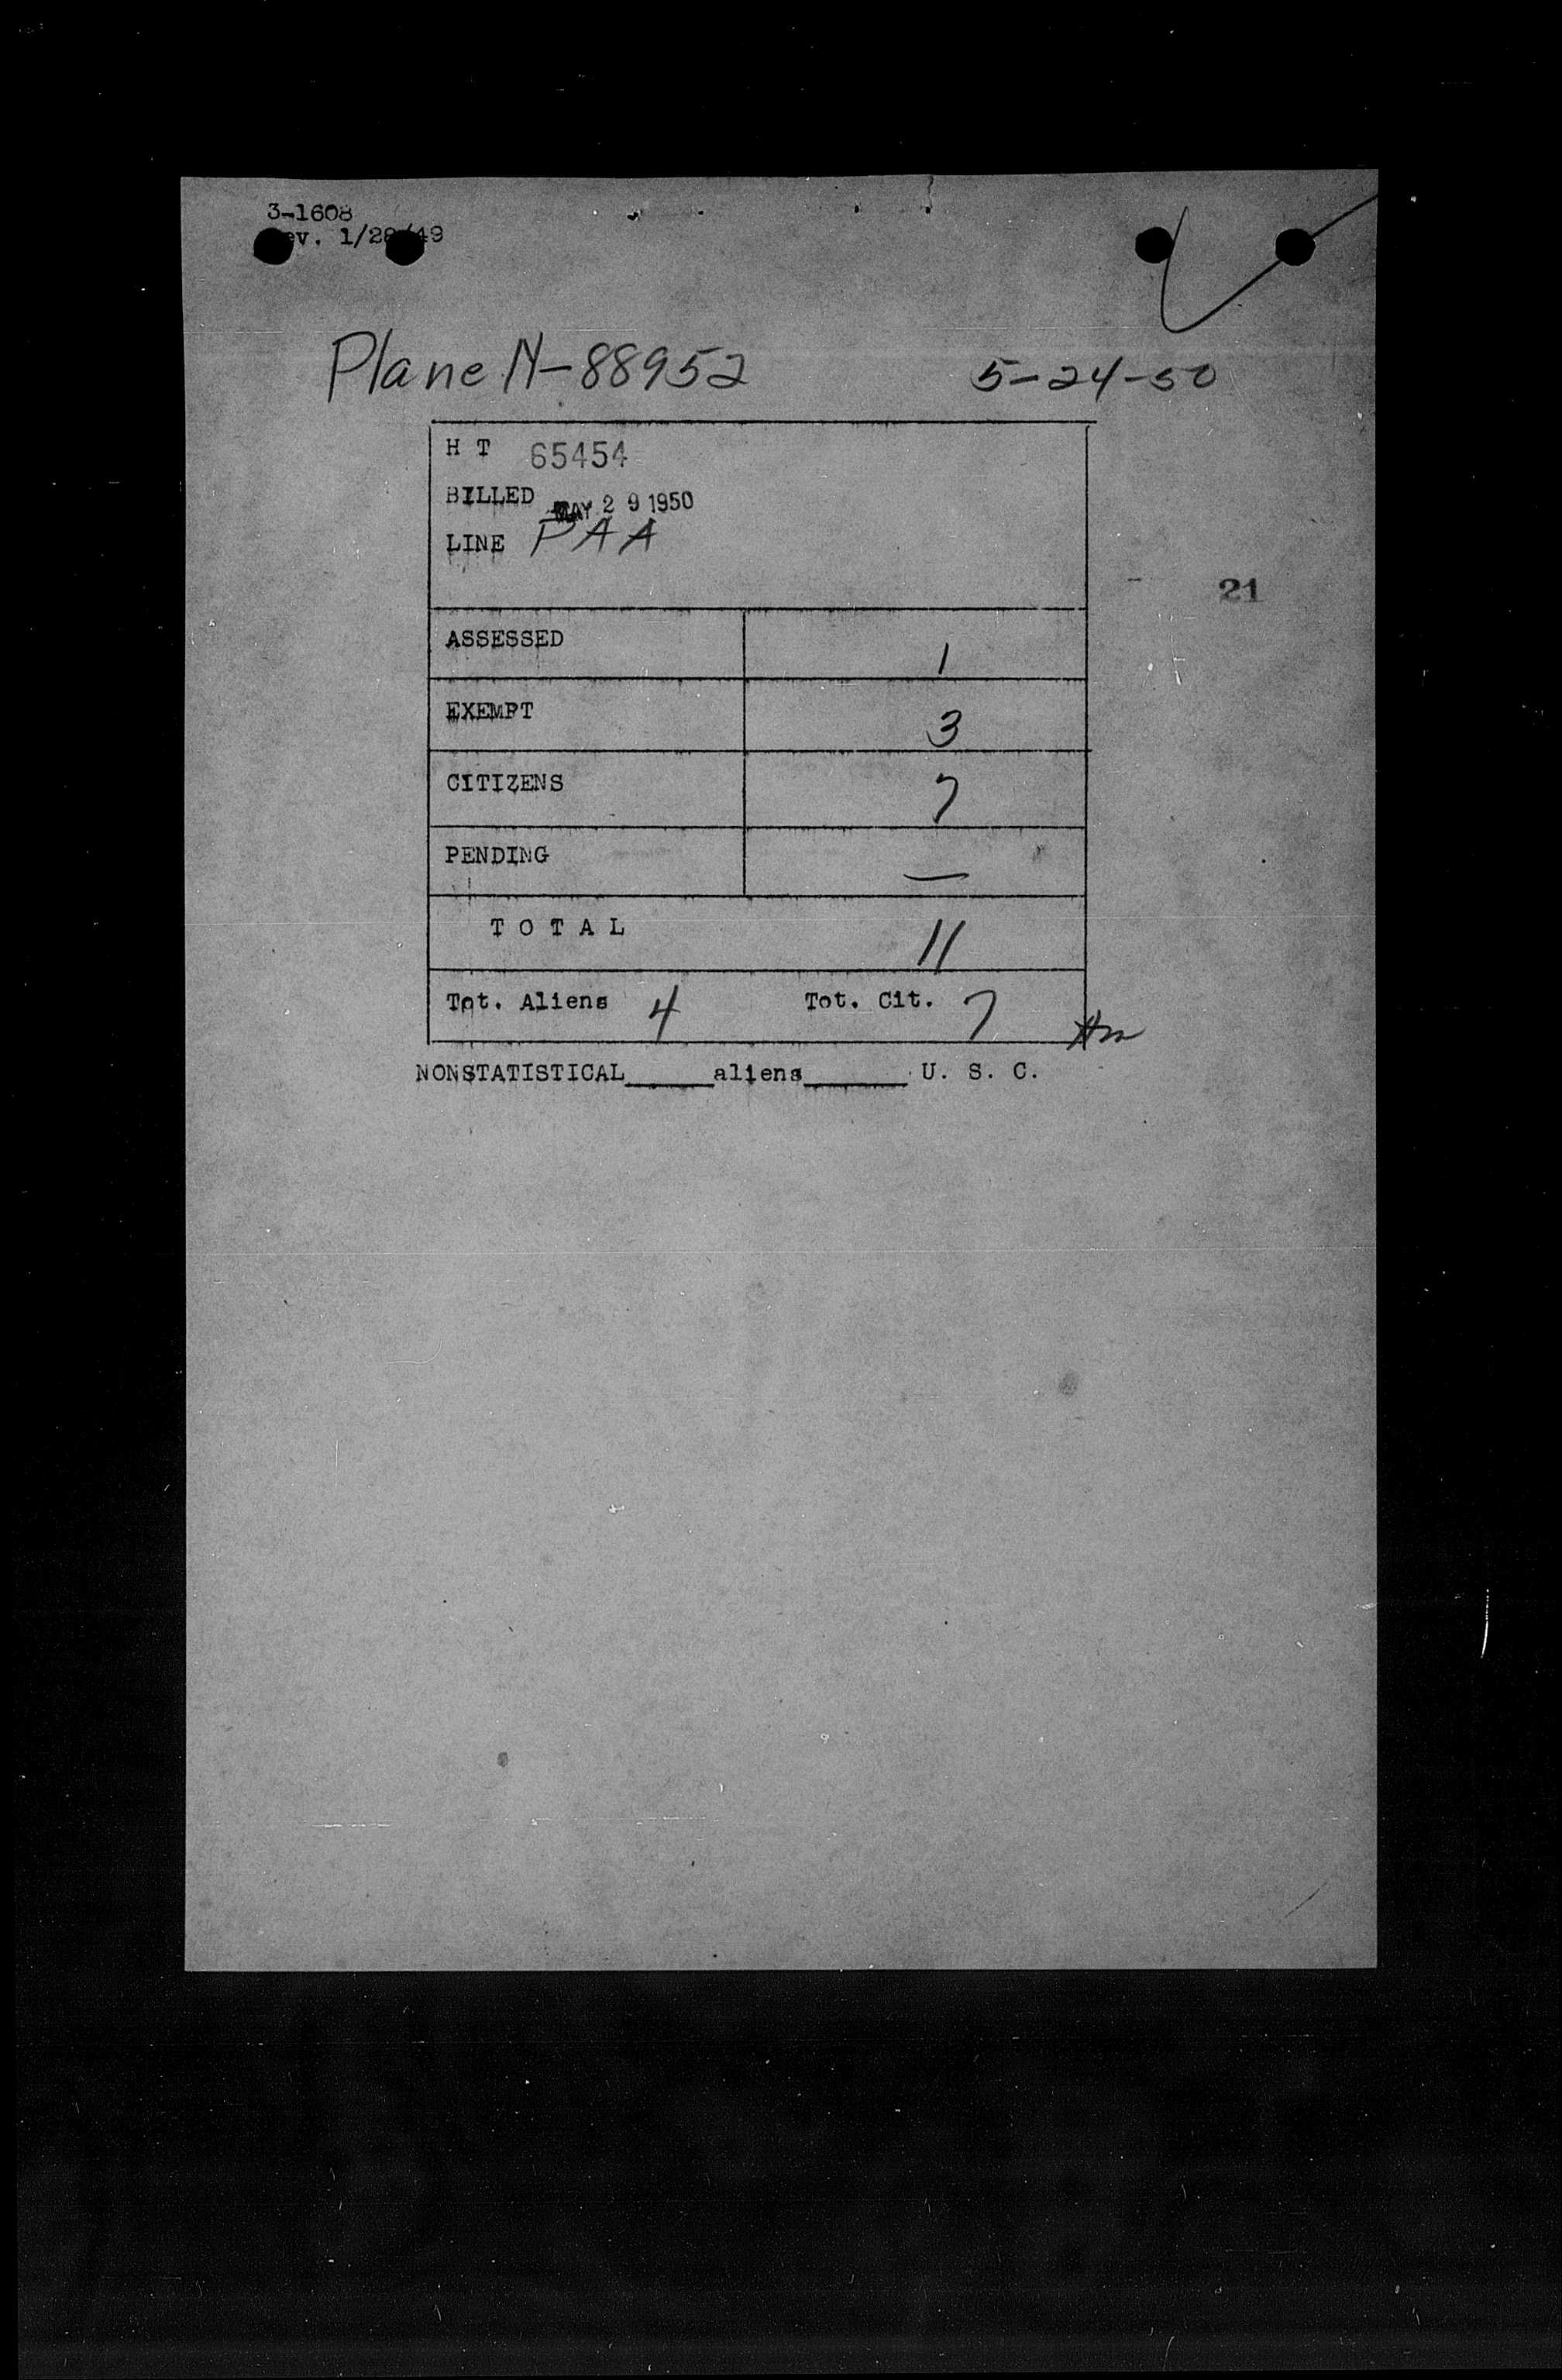 3-1608
Rev. 1/28/49
Plane N-88952 5-24-50
H T 65454
BILLED MAY 29 1950
LINE PAA
21
ASSESSED 1
EXEMPT 3
CITIZENS 7
PENDING —
T O T A L 11
Tot. Aliens 4 Tot. Cit. 7
NONSTATISTICAL______aliens_______ U. S. C.